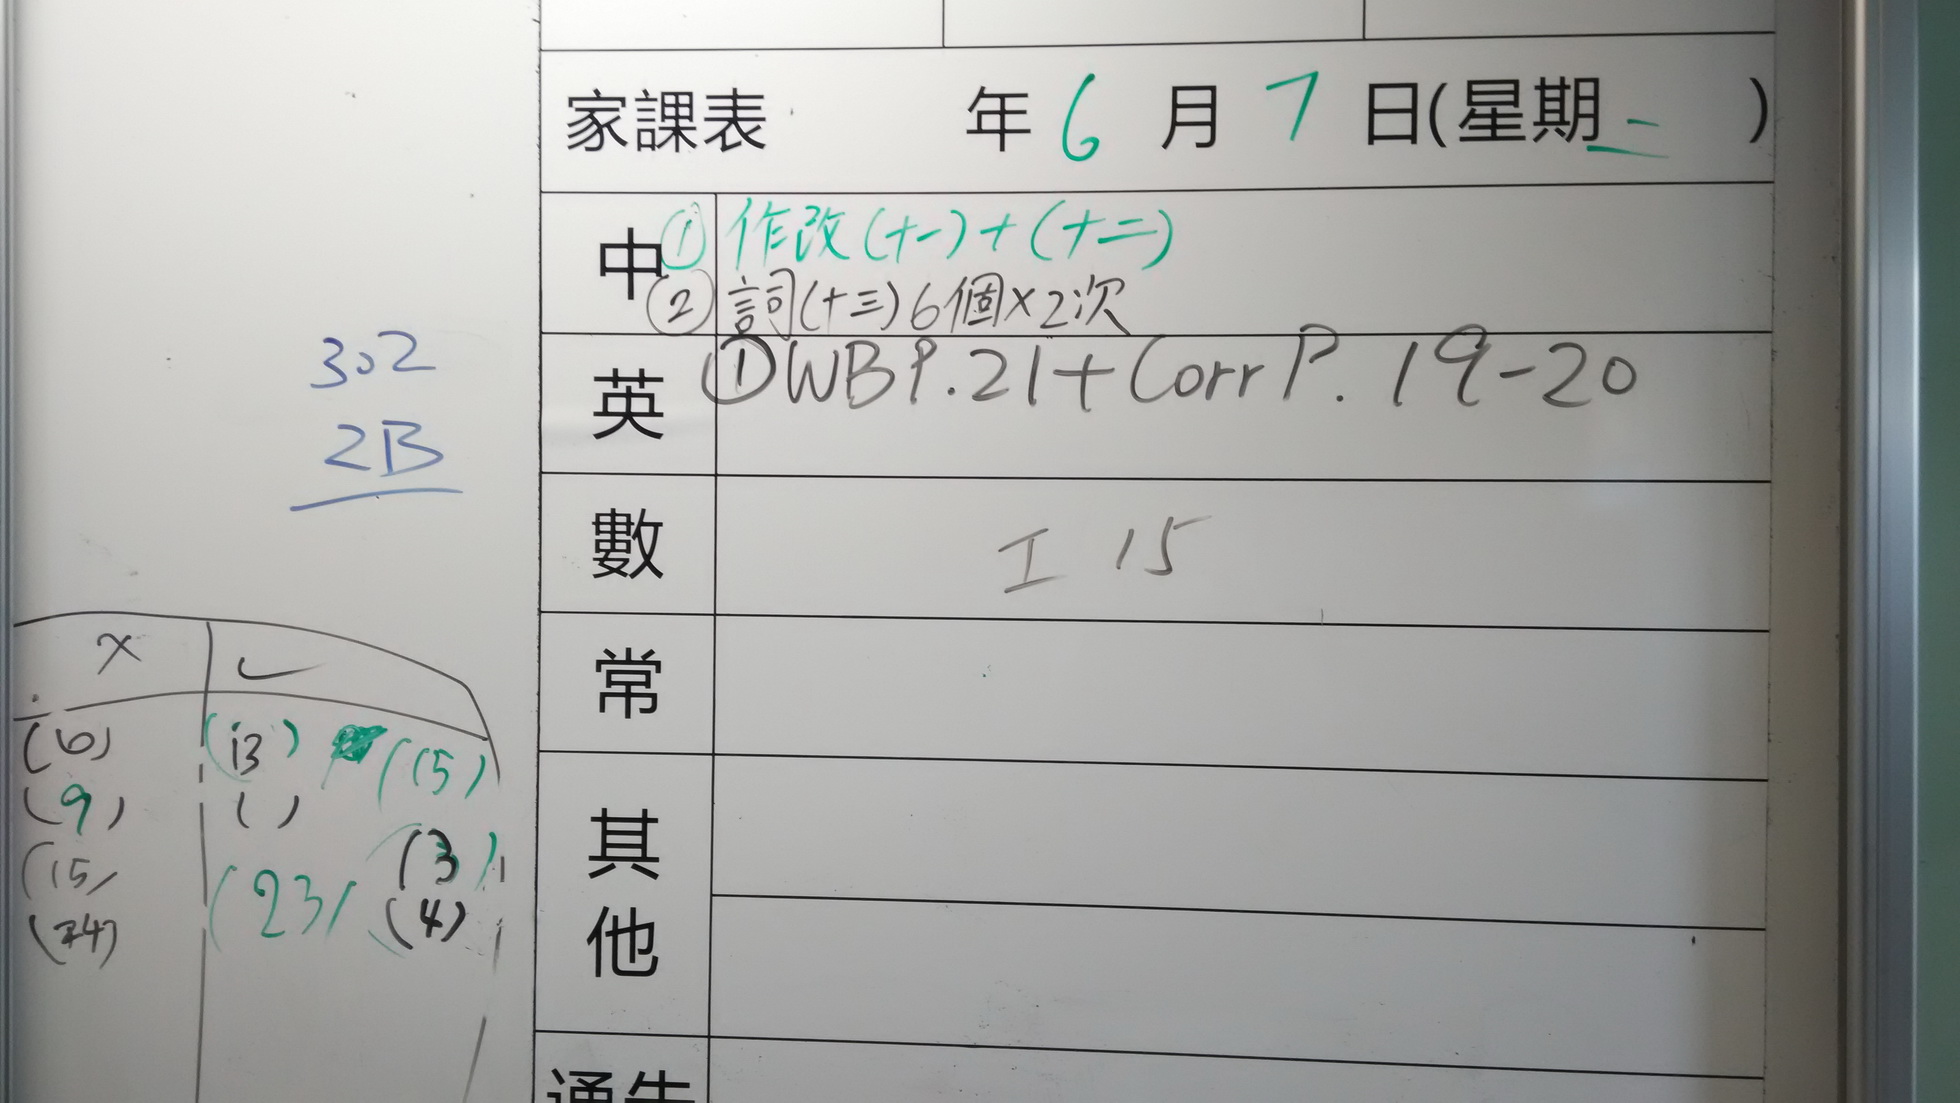 家課表 年 6 月 7 日(星期二 )
中 ① 作改(十一)+(十二)
② 詞(十三)6個×2次
英 ① WB P.21+Corr P. 19-20
數 I 15
常
其他
通告
302
2B
× ✓
(6) (13) (15)
(9) ( )
(15) (3)
(23)
(24) (4)